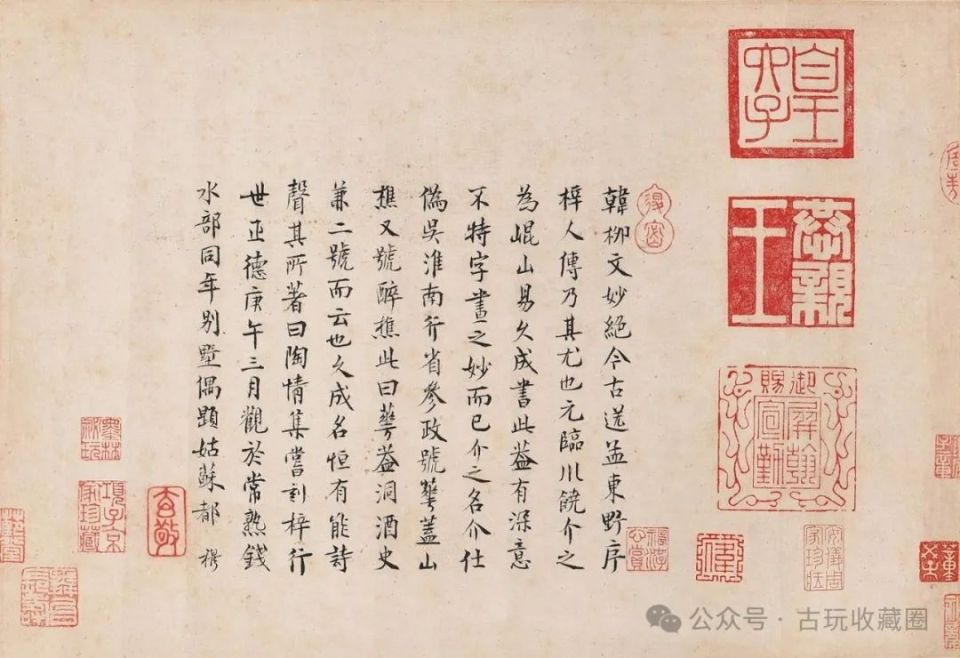 皇六子
恭親王
御賜屏翰宣勤
安儀周家珍藏
韓柳文妙絕今古送孟東野序
梓人傳乃其尤也元臨川饒介之
為崐山易久成書此蓋有深意
不特字畫之妙而已介之名介仕
偽吳淮南行省參政號華蓋山
樵又號醉樵此曰華蓋洞酒史
兼二號而云也久成名恒有能詩
聲其所著曰陶情集嘗刻梓行
世正德庚午三月觀於常熟錢
水部同年別墅偶題姑蘇都 穆
玄敬
墨林祕玩
項子京家珍藏
公众号·古玩收藏圈